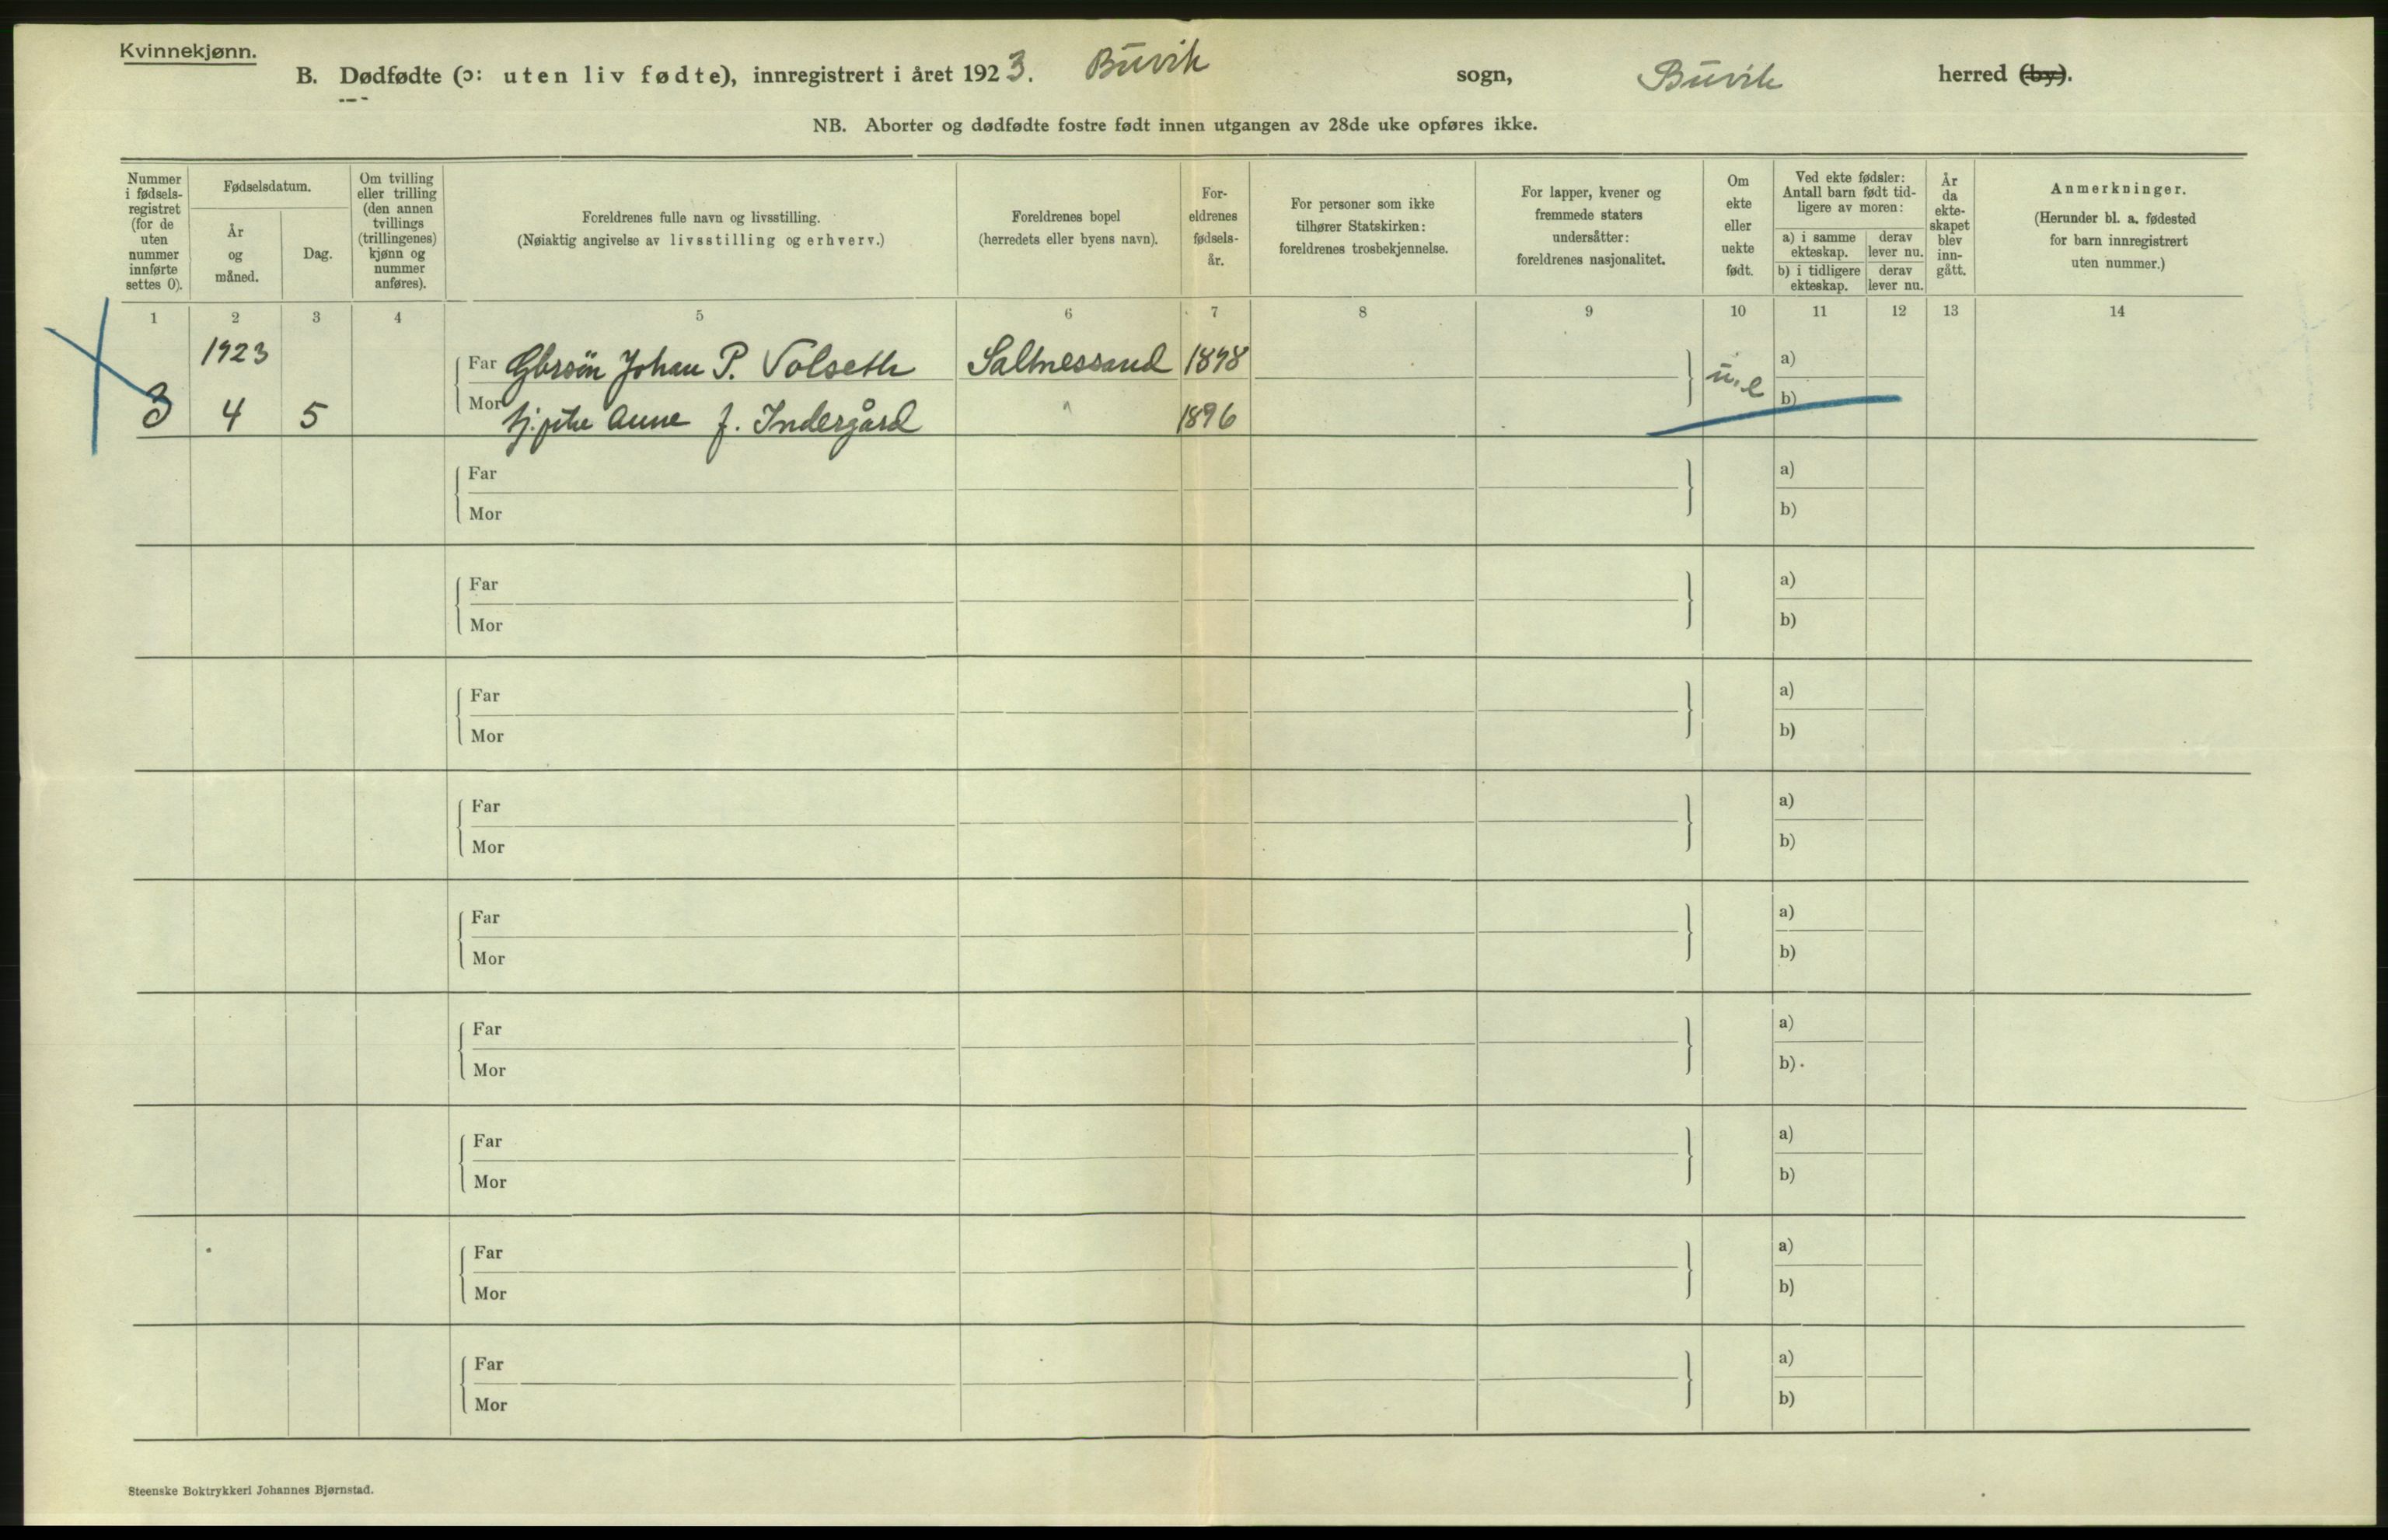 Kvinnekjønn.
B. Dødfødte (ɔ: uten liv fødte), innregistrert i året 1923. Buvik sogn, Buvik herred (by).
NB. Aborter og dødfødte fostre født innen utgangen av 28de uke opføres ikke.
Nummer i fødselsregistret (for de uten nummer innførte settes 0).
Fødselsdatum.
År og måned.
Dag.
Om tvilling eller trilling (den annen tvillings (trillingenes) kjønn og nummer anføres).
Foreldrenes fulle navn og livsstilling.
(Nøiaktig angivelse av livsstilling og erhverv.)
Foreldrenes bopel
(herredets eller byens navn).
Foreldrenes fødselsår.
For personer som ikke tilhører Statskirken: foreldrenes trosbekjennelse.
For lapper, kvener og fremmede staters undersåtter: foreldrenes nasjonalitet.
Om ekte eller uekte født.
Ved ekte fødsler: Antall barn født tidligere av moren:
a) i samme ekteskap.
derav lever nu.
b) i tidligere ekteskap.
derav lever nu.
År da ekteskapet blev inngått.
Anmerkninger.
(Herunder bl. a. fødested for barn innregistrert uten nummer.)
1 2 3 4 5 6 7 8 9 10 11 12 13 14
1923 Far Gbrsön Johan P. Volseth Saltnessand 1898 u.e a)
3 4 5 Mor Anne J. Indergård 1896 b)
Far a)
Mor b)
Far a)
Mor b)
Far a)
Mor b)
Far a)
Mor b)
Far a)
Mor b)
Far a)
Mor b)
Far a)
Mor b)
Far a)
Mor b)
Far a)
Mor b)
Steenske Boktrykkeri Johannes Bjørnstad.